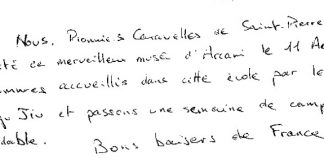 Nous, Pionniers Caravelles de Saint-Pierre
été ce merveilleux musé d'Arcari le 11 A
ommes accueillis dans cette école par le
Jiu et passons une semaine de camp
dable. Bons baisers de France